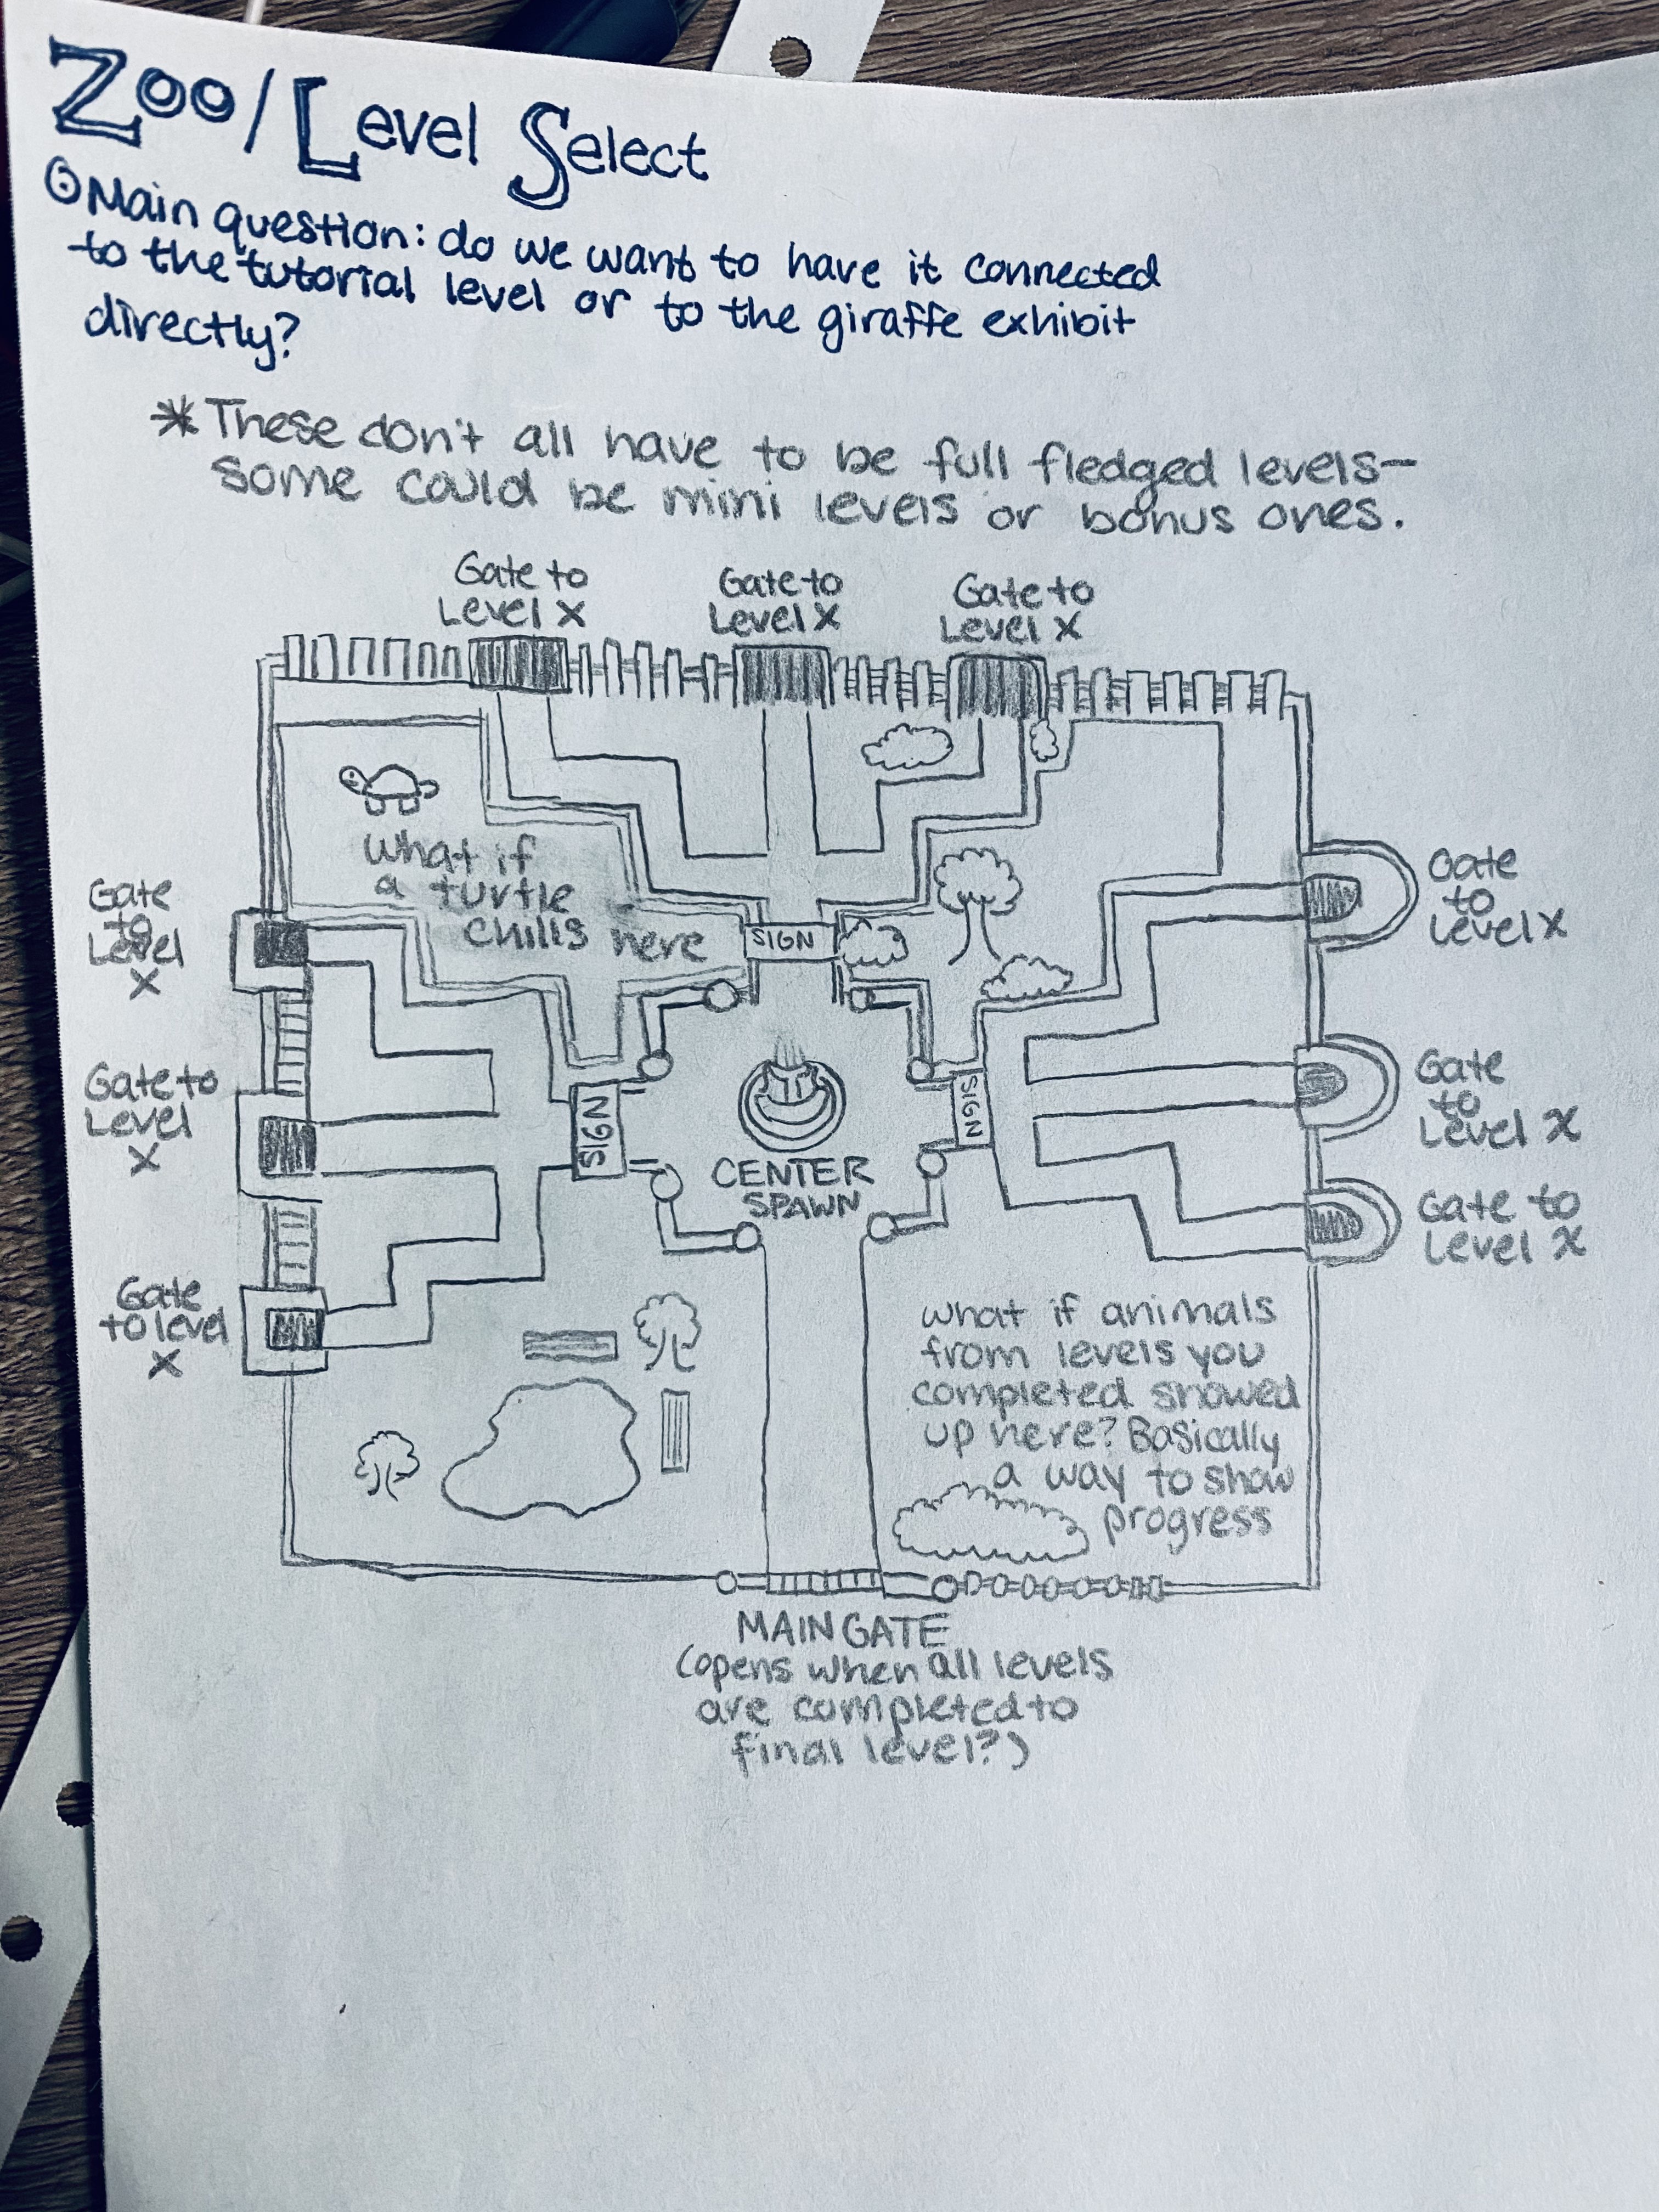 Zoo/Level Select
Main question: do we want to have it connected
to the tutorial level or to the giraffe exhibit
directly?
*These don't all have to be full fledged levels—
some could be mini levels or bonus ones.
Gate to
Level X
Gate to
Level X
Gate to
Level X
What if
a turtle
chills here
SIGN
Gate
to
Level
X
Gate to
Level
X
Gate
to level
X
SIGN
CENTER
SPAWN
SIGN
Gate
to
Level X
Gate
to
Level X
Gate to
Level X
What if animals
from levels you
completed showed
up here? Basically
a way to show
progress
MAIN GATE
(opens when all levels
are completed to
final level?)